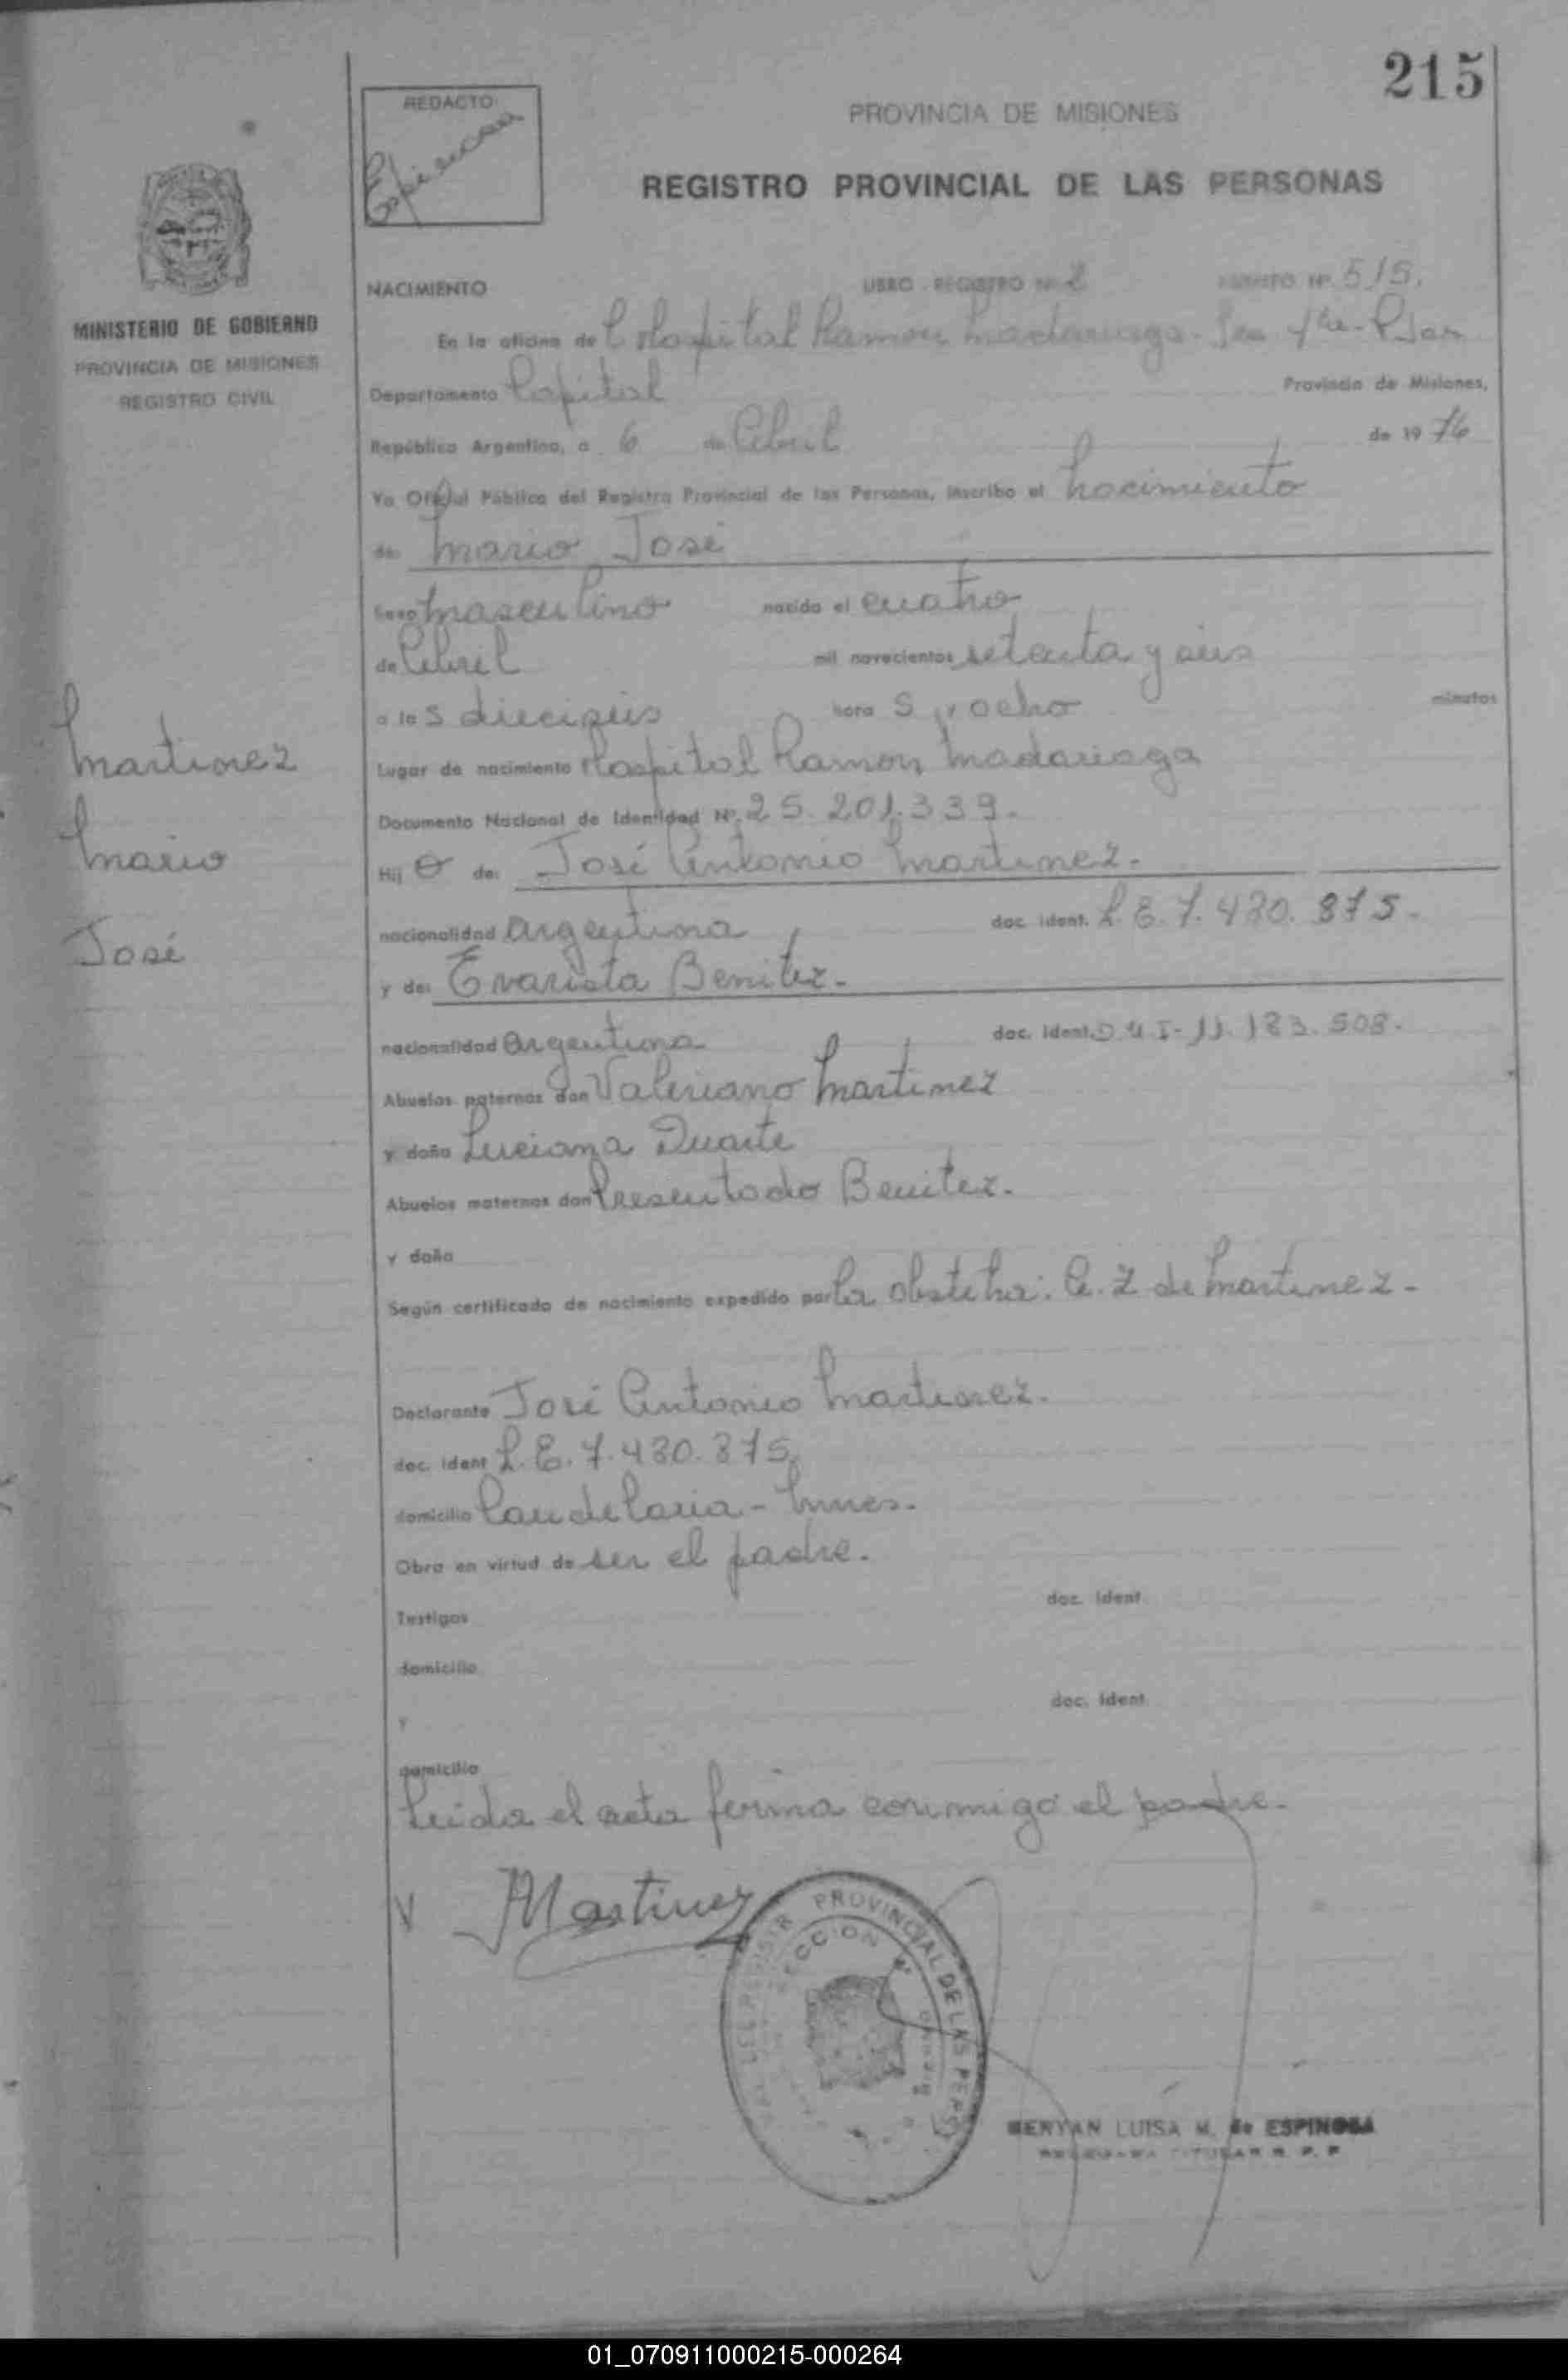 215
REDACTO
Espinosa
PROVINCIA DE MISIONES
REGISTRO PROVINCIAL DE LAS PERSONAS
MINISTERIO DE GOBIERNO
PROVINCIA DE MISIONES
REGISTRO CIVIL
NACIMIENTO LIBRO REGISTRO Nº 2 ASIENTO Nº 515.
En la oficina de Hospital Ramon Madariaga -
Departamento Capital Provincia de Misiones,
República Argentina, a 6 de Abril de 19 76
Yo Oficial Público del Registro Provincial de las Personas, inscribo el nacimiento
de: Mario José
Sexo Masculino nacido el cuatro
de Abril mil novecientos setenta y seis
a la s dieciseis hora s y ocho minutos
Lugar de nacimiento Hospital Ramon Madariaga
Documento Nacional de Identidad Nº. 25.201.339.
Hij o de: José Antonio Martinez.
nacionalidad argentina doc. ident. L.E. 7.480.875.
y de: Evarista Benitez.
nacionalidad Argentina doc. ident. D.N.I- 11.183.508.
Abuelos paternos don Valeriano Martinez
y doña Luciana Duarte
Abuelos maternos don Presentado Benitez.
y doña
Según certificado de nacimiento expedido por la obstetra: A. Z de Martinez -
Declarante José Antonio Martinez.
doc. ident L.E. 7.480.875.
domicilio Candelaria - Mnes.
Obra en virtud de ser el padre.
Testigos doc. ident.
domicilio
y doc. ident.
domicilio
Leida el acta firma conmigo el padre.
Martinez
PROVINCIAL DE LAS PERS
SECCION
LUISA M. de ESPINOSA
TITULAR R. P. P
Martinez
Mario
José
01_070911000215-000264